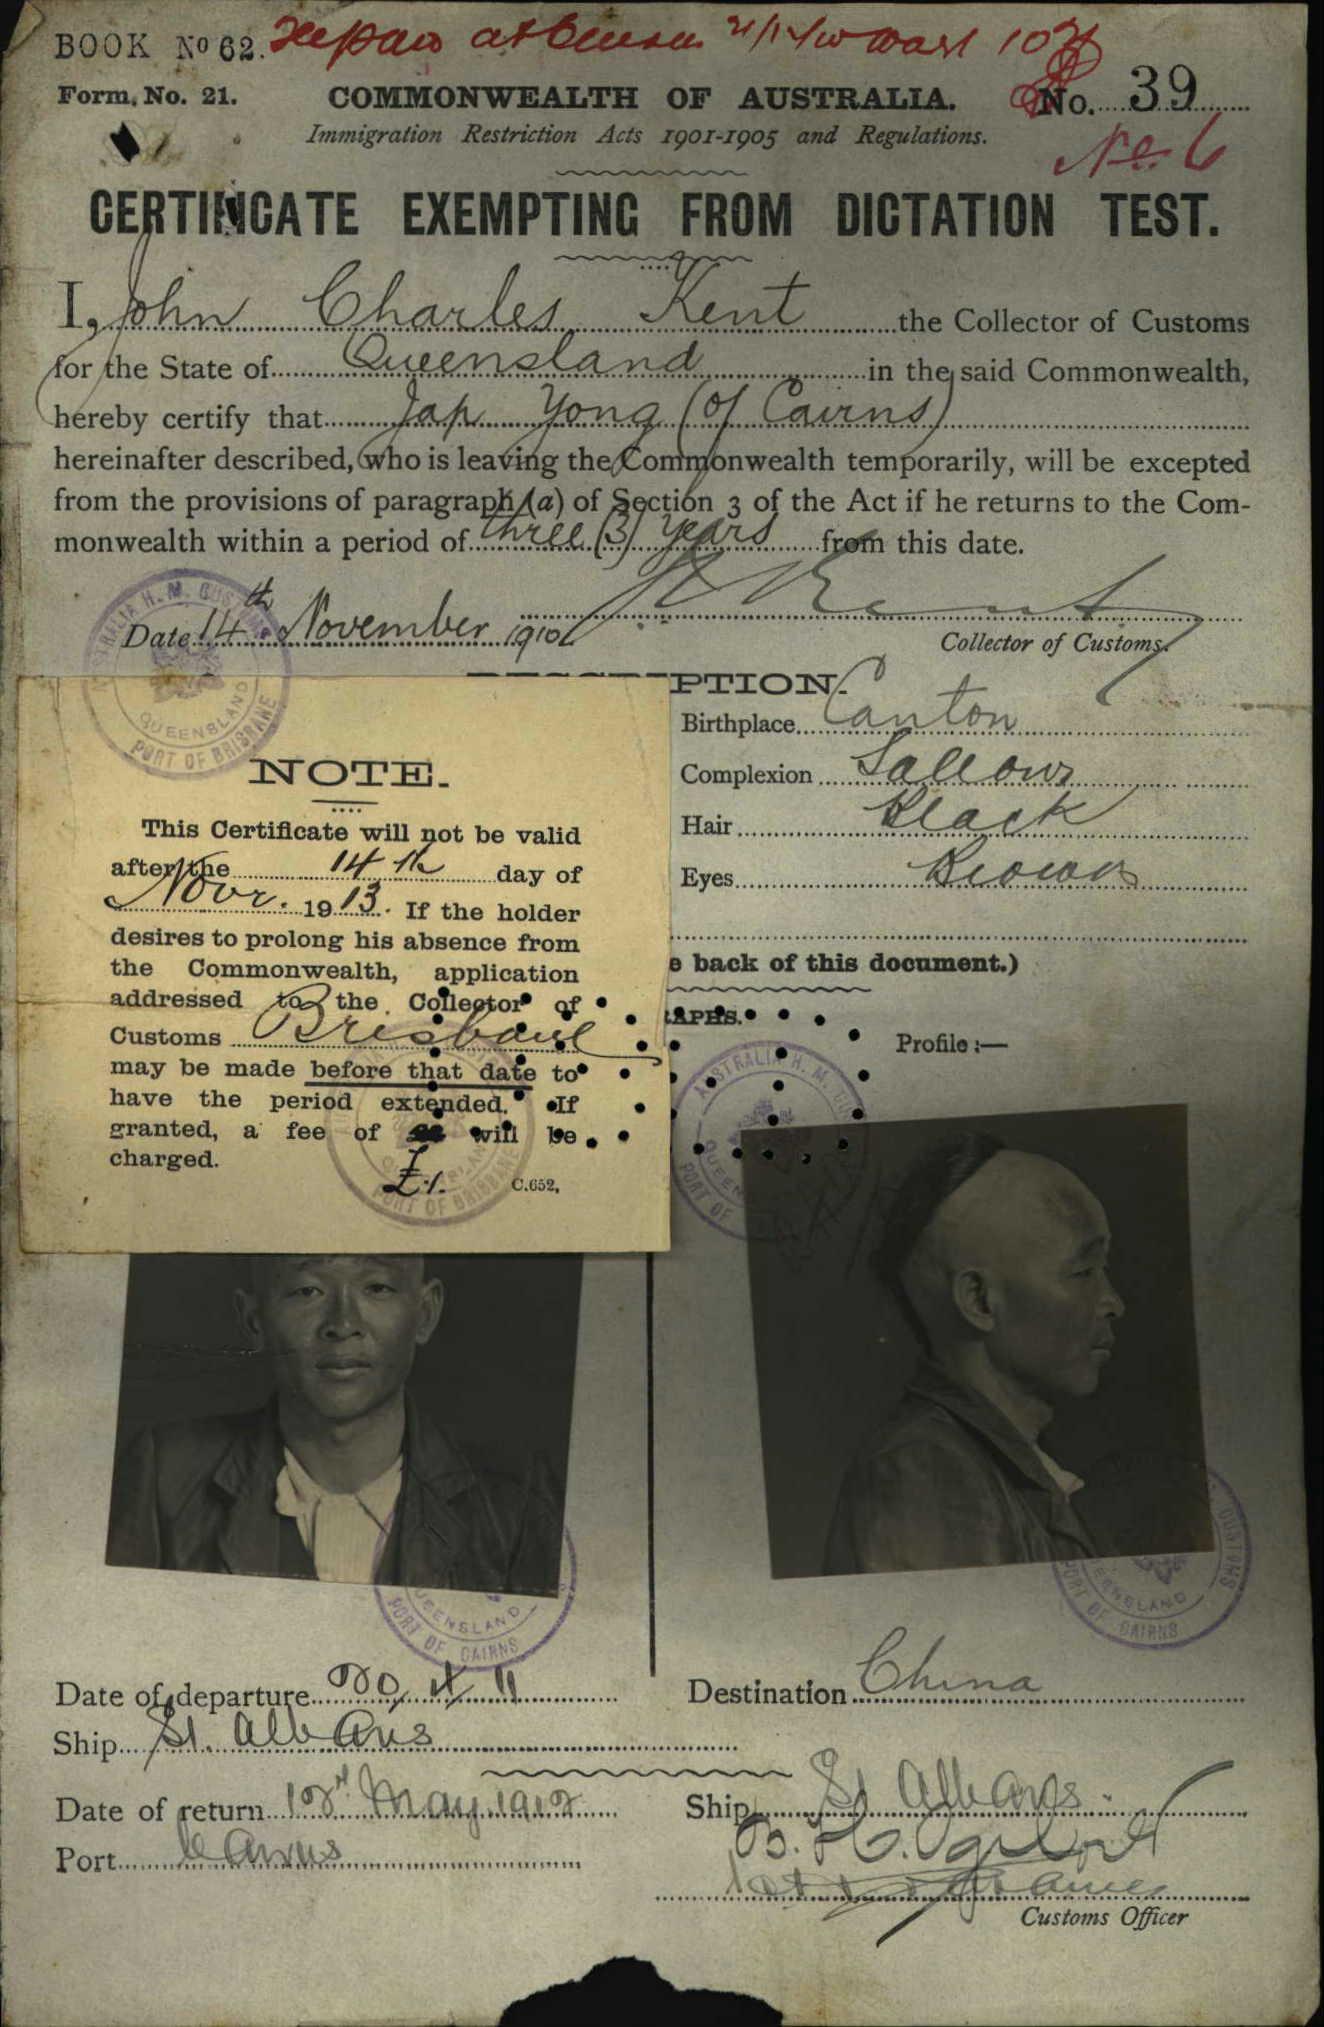 BOOK No 62.
Form. No. 21.
COMMONWEALTH OF AUSTRALIA.
No. 39
Immigration Restriction Acts 1901-1905 and Regulations.
No 6
CERTIFICATE EXEMPTING FROM DICTATION TEST.
I, John Charles Kent the Collector of Customs
for the State of Queensland in the said Commonwealth,
hereby certify that Jap Yong (of Cairns)
hereinafter described, who is leaving the Commonwealth temporarily, will be excepted
from the provisions of paragraph (a) of Section 3 of the Act if he returns to the Com-
monwealth within a period of three (3) years from this date.
Date 14th November 1910
Collector of Customs.
PTION.
Birthplace Canton
Complexion Sallow
Hair Black
Eyes Brown
e back of this document.)
RAPHS.
Profile :—
NOTE.
This Certificate will not be valid
after the 14th day of
Novr. 1913. If the holder
desires to prolong his absence from
the Commonwealth, application
addressed to the Collector of
Customs Brisbane
may be made before that date to
have the period extended. If
granted, a fee of will be
charged.
£1.
C.652,
AUSTRALIA H. M. CUSTOMS
QUEENSLAND
PORT OF BRISBANE
AUSTRALIA H. M. CU
QUEEN
PORT OF
QUEENSLAND
PORT OF CAIRNS
CUSTOMS
PORT OF CAIRNS
Date of departure 20/4/11
Destination China
Ship St. Albans
Date of return 12th May 1912
Ship St Albans.
Port Cairns
Customs Officer